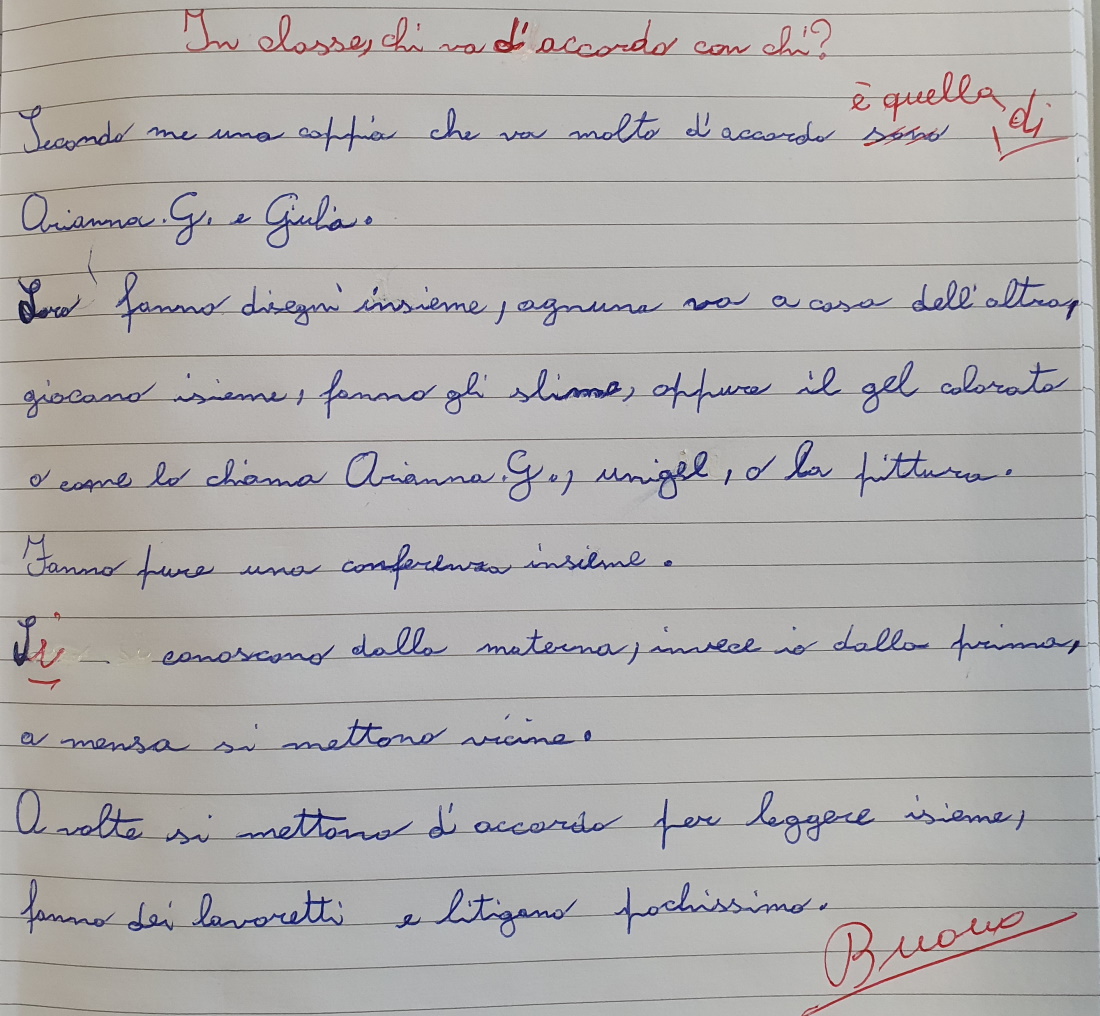 In classe, chi va d'accordo con chi?
è quella di
Secondo me una coppia che va molto d'accordo sono
Arianna.G. e Giulia.
Loro fanno disegni insieme, ognuna va a casa dell'altra,
giocano isieme, fanno gli slime, oppure il gel colorato
o come lo chiama Arianna.G., unigel, o la pittura.
Fanno pure una conferenza insieme.
Si conoscono dalla materna, invece io dalla prima,
a mensa si mettono vicine.
A volte si mettono d'accordo per leggere isieme,
fanno dei lavoretti e litigano pochissimo.
Buono